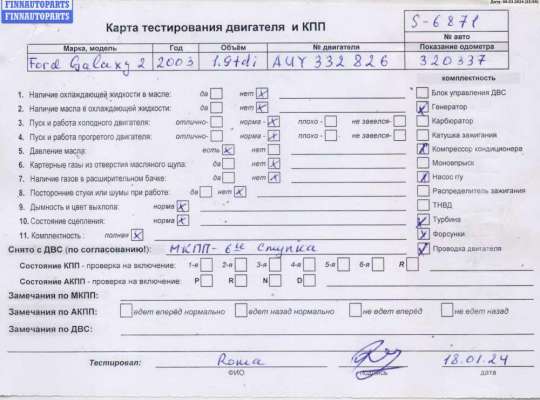 FINNAUTOPARTS
FINNAUTOPARTS
Карта тестирования двигателя и КПП
S-6871
№ авто
Марка, модель Год Объём № двигателя Показание одометра
Ford Galaxy 2 2003 1.9tdi AUY 332 826 320337
комплектность
1. Наличие охлаждающей жидкости в масле: да нет
Блок управления ДВС
2. Наличие масла в охлаждающей жидкости: да нет
Генератор
3. Пуск и работа холодного двигателя: отлично- норма - плохо - не завелся-
Карбюратор
4. Пуск и работа прогретого двигателя: отлично- норма - плохо - не завелся-
Катушка зажигания
5. Давление масла: есть нет
Компрессор кондиционера
6. Картерные газы из отверстия масляного щупа: да нет
Моновпрыск
7. Наличие газов в расширительном бачке: да нет
Насос г/у
8. Посторонние стуки или шумы при работе: да нет
Распределитель зажигания
9. Дымность и цвет выхлопа: норма
ТНВД
10. Состояние сцепления: норма
Турбина
11. Комплектность : полная
Форсунки
Снято с ДВС (по согласованию!): МКПП - 6ти ступка
Проводка двигателя
Состояние КПП - проверка на включение: 1-я 2-я 3-я 4-я 5-я 6-я R
Состояние АКПП - проверка на включение: P R N D
Замечания по МКПП:
Замечания по АКПП: едет вперёд нормально едет назад нормально не едет вперёд не едет назад
Замечания по ДВС:
Тестировал: Roma 18.01.24
ФИО подпись дата